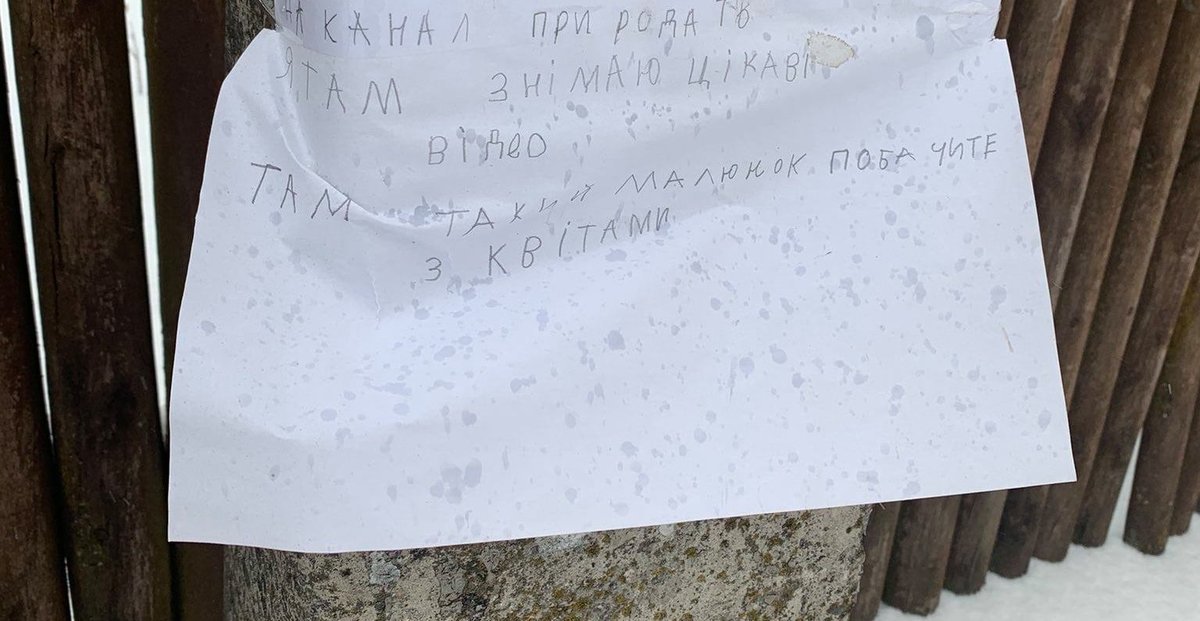 НА КАНАЛ ПРИ РОДА ТВ
Я ТАМ ЗНІМАЮ ЦІКАВІ
ВІДЕО
ТАМ ТАКИЙ МАЛЮНОК ПОБА ЧИТЕ
З КВІТАМИ